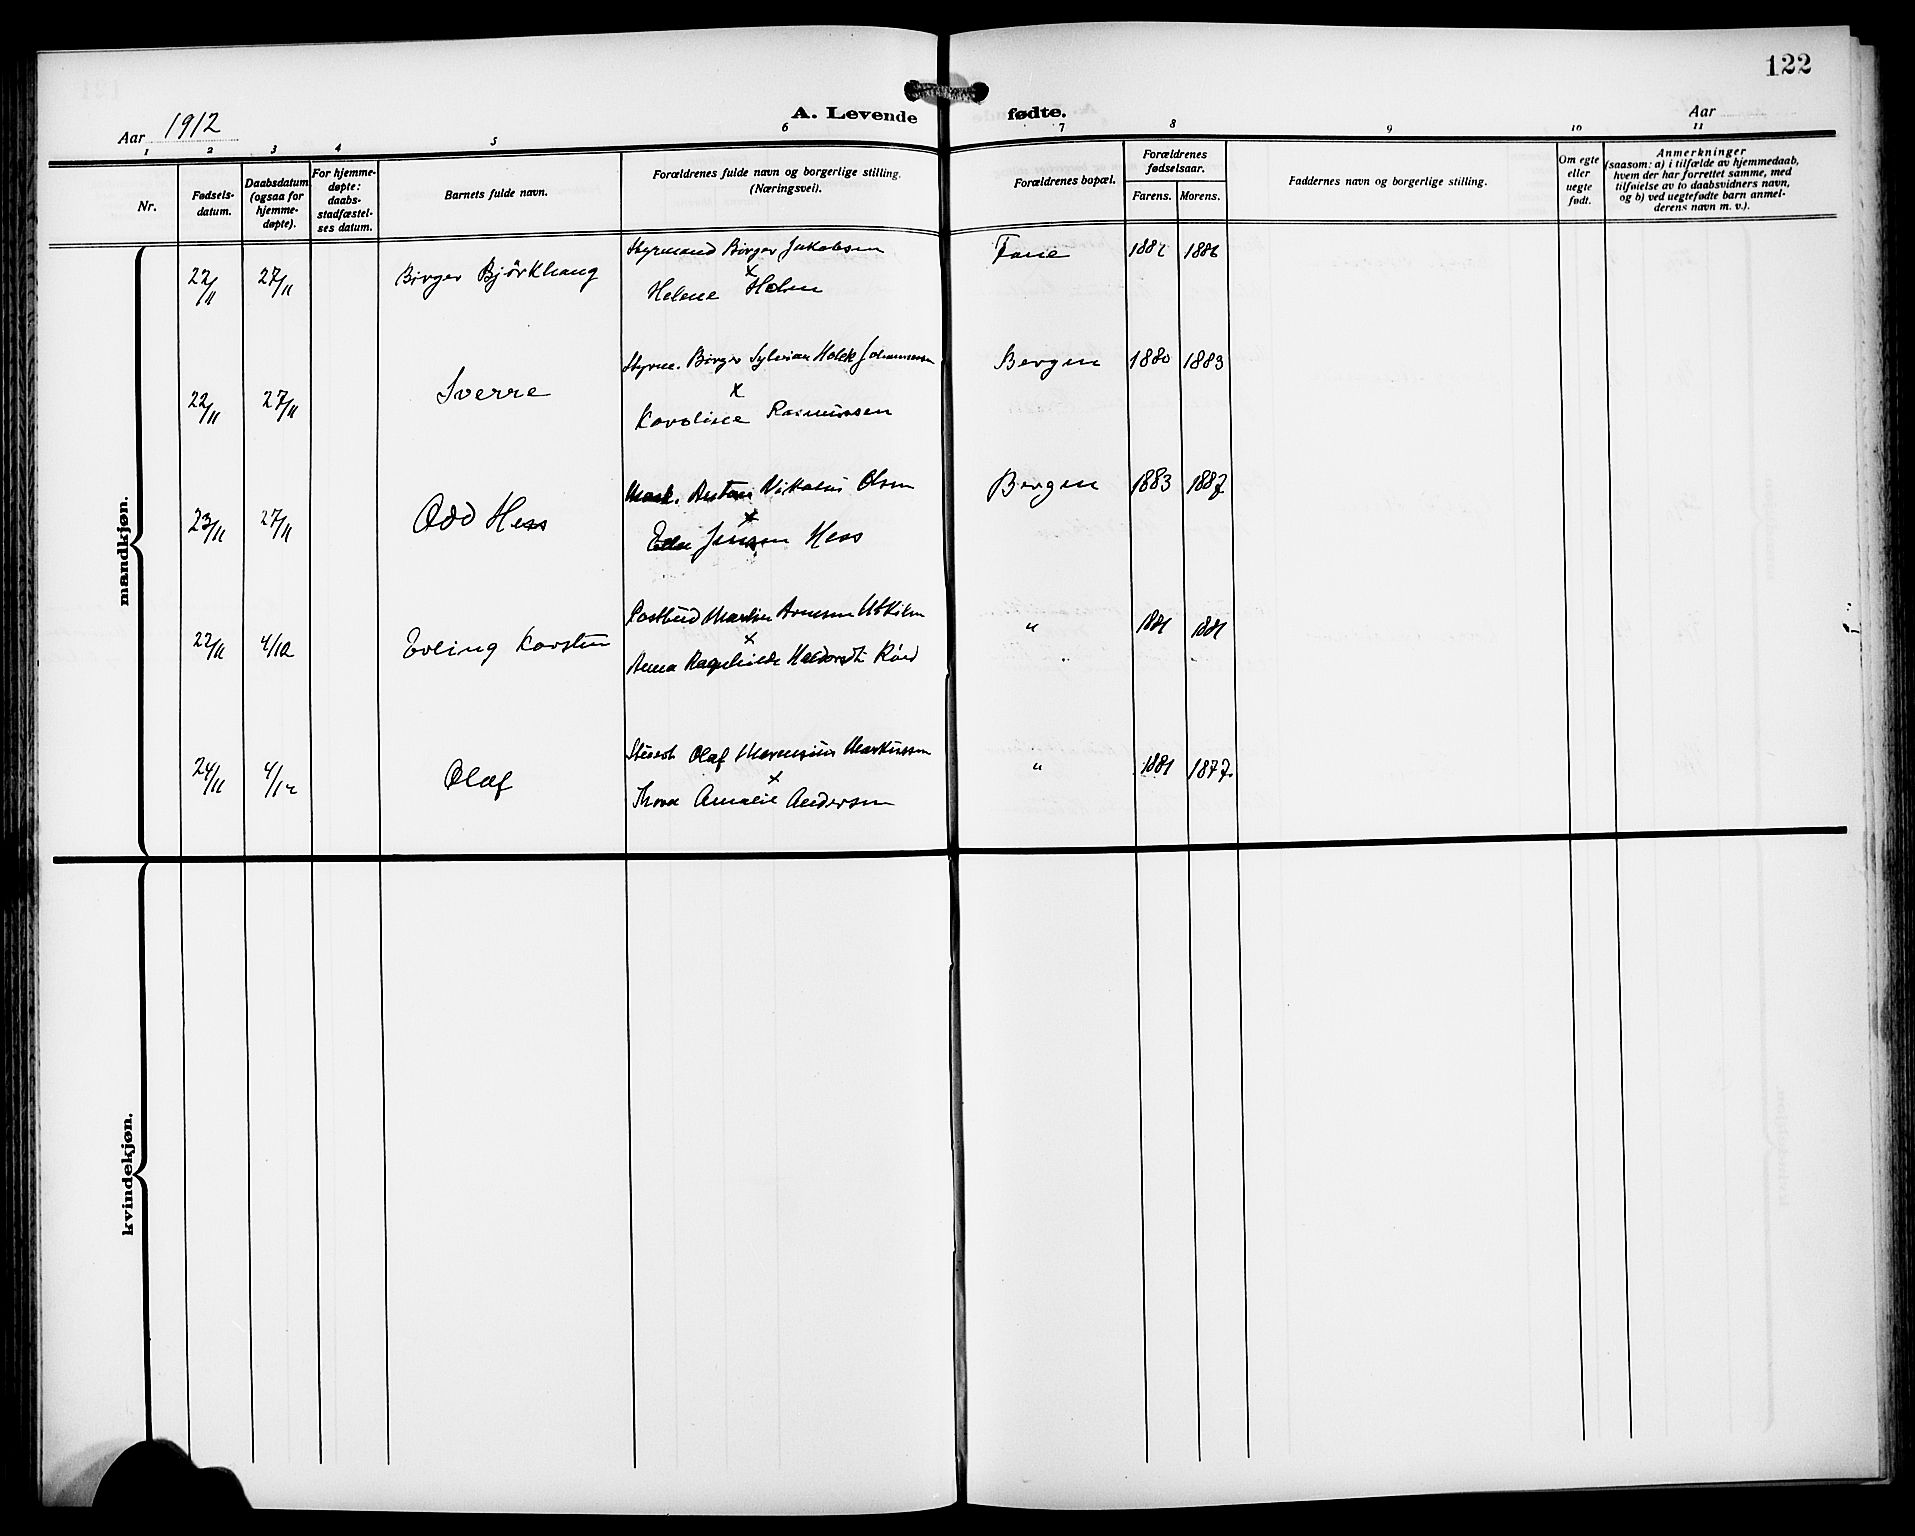 122
Aar 1912
A. Levende fødte.
Aar
1 2 3 4 5 6 7 8 9 10 11
Nr.
Fødsels-
datum.
Daabsdatum
(ogsaa for
hjemme-
døpte).
For hjemme-
døpte:
daabs-
stadfæstel-
ses datum.
Barnets fulde navn.
Forældrenes fulde navn og borgerlige stilling.
(Næringsvei).
Forældrenes bopæl.
Forældrenes
fødselsaar.
Farens. Morens.
Faddernes navn og borgerlige stilling.
Om egte
eller
uegte
født.
Anmerkninger
(saasom: a) i tilfælde av hjemmedaab,
hvem der har forrettet samme, med
tilføielse av to daabsvidners navn,
og b) ved uegtefødte barn anmel-
derens navn m. v.).
mandkjøn.
22/11 27/11 Birger Bjørkhaug
Styrmand Birger Jakobsen
x
Helene Holm
Fane 1882 1886
22/11 27/11 Sverre
Styrm. Birger Sylvian Holck Johannessen
x
Karoline Rasmussen
Bergen 1880 1883
23/11 27/11 Odd Hess
Mask. Anton Nikolai Olsen
x
Jensen Hess
Bergen 1883 1887
22/11 4/12 Erling Karsten
Postbud Martin Arnesen Utkilen
x
Anna Ragnhilde
" 1881 1881
24/11 4/12 Olaf
Olaf Markussen
x
Thora Amalie Andersen
" 1881 1877.
kvindekjøn.